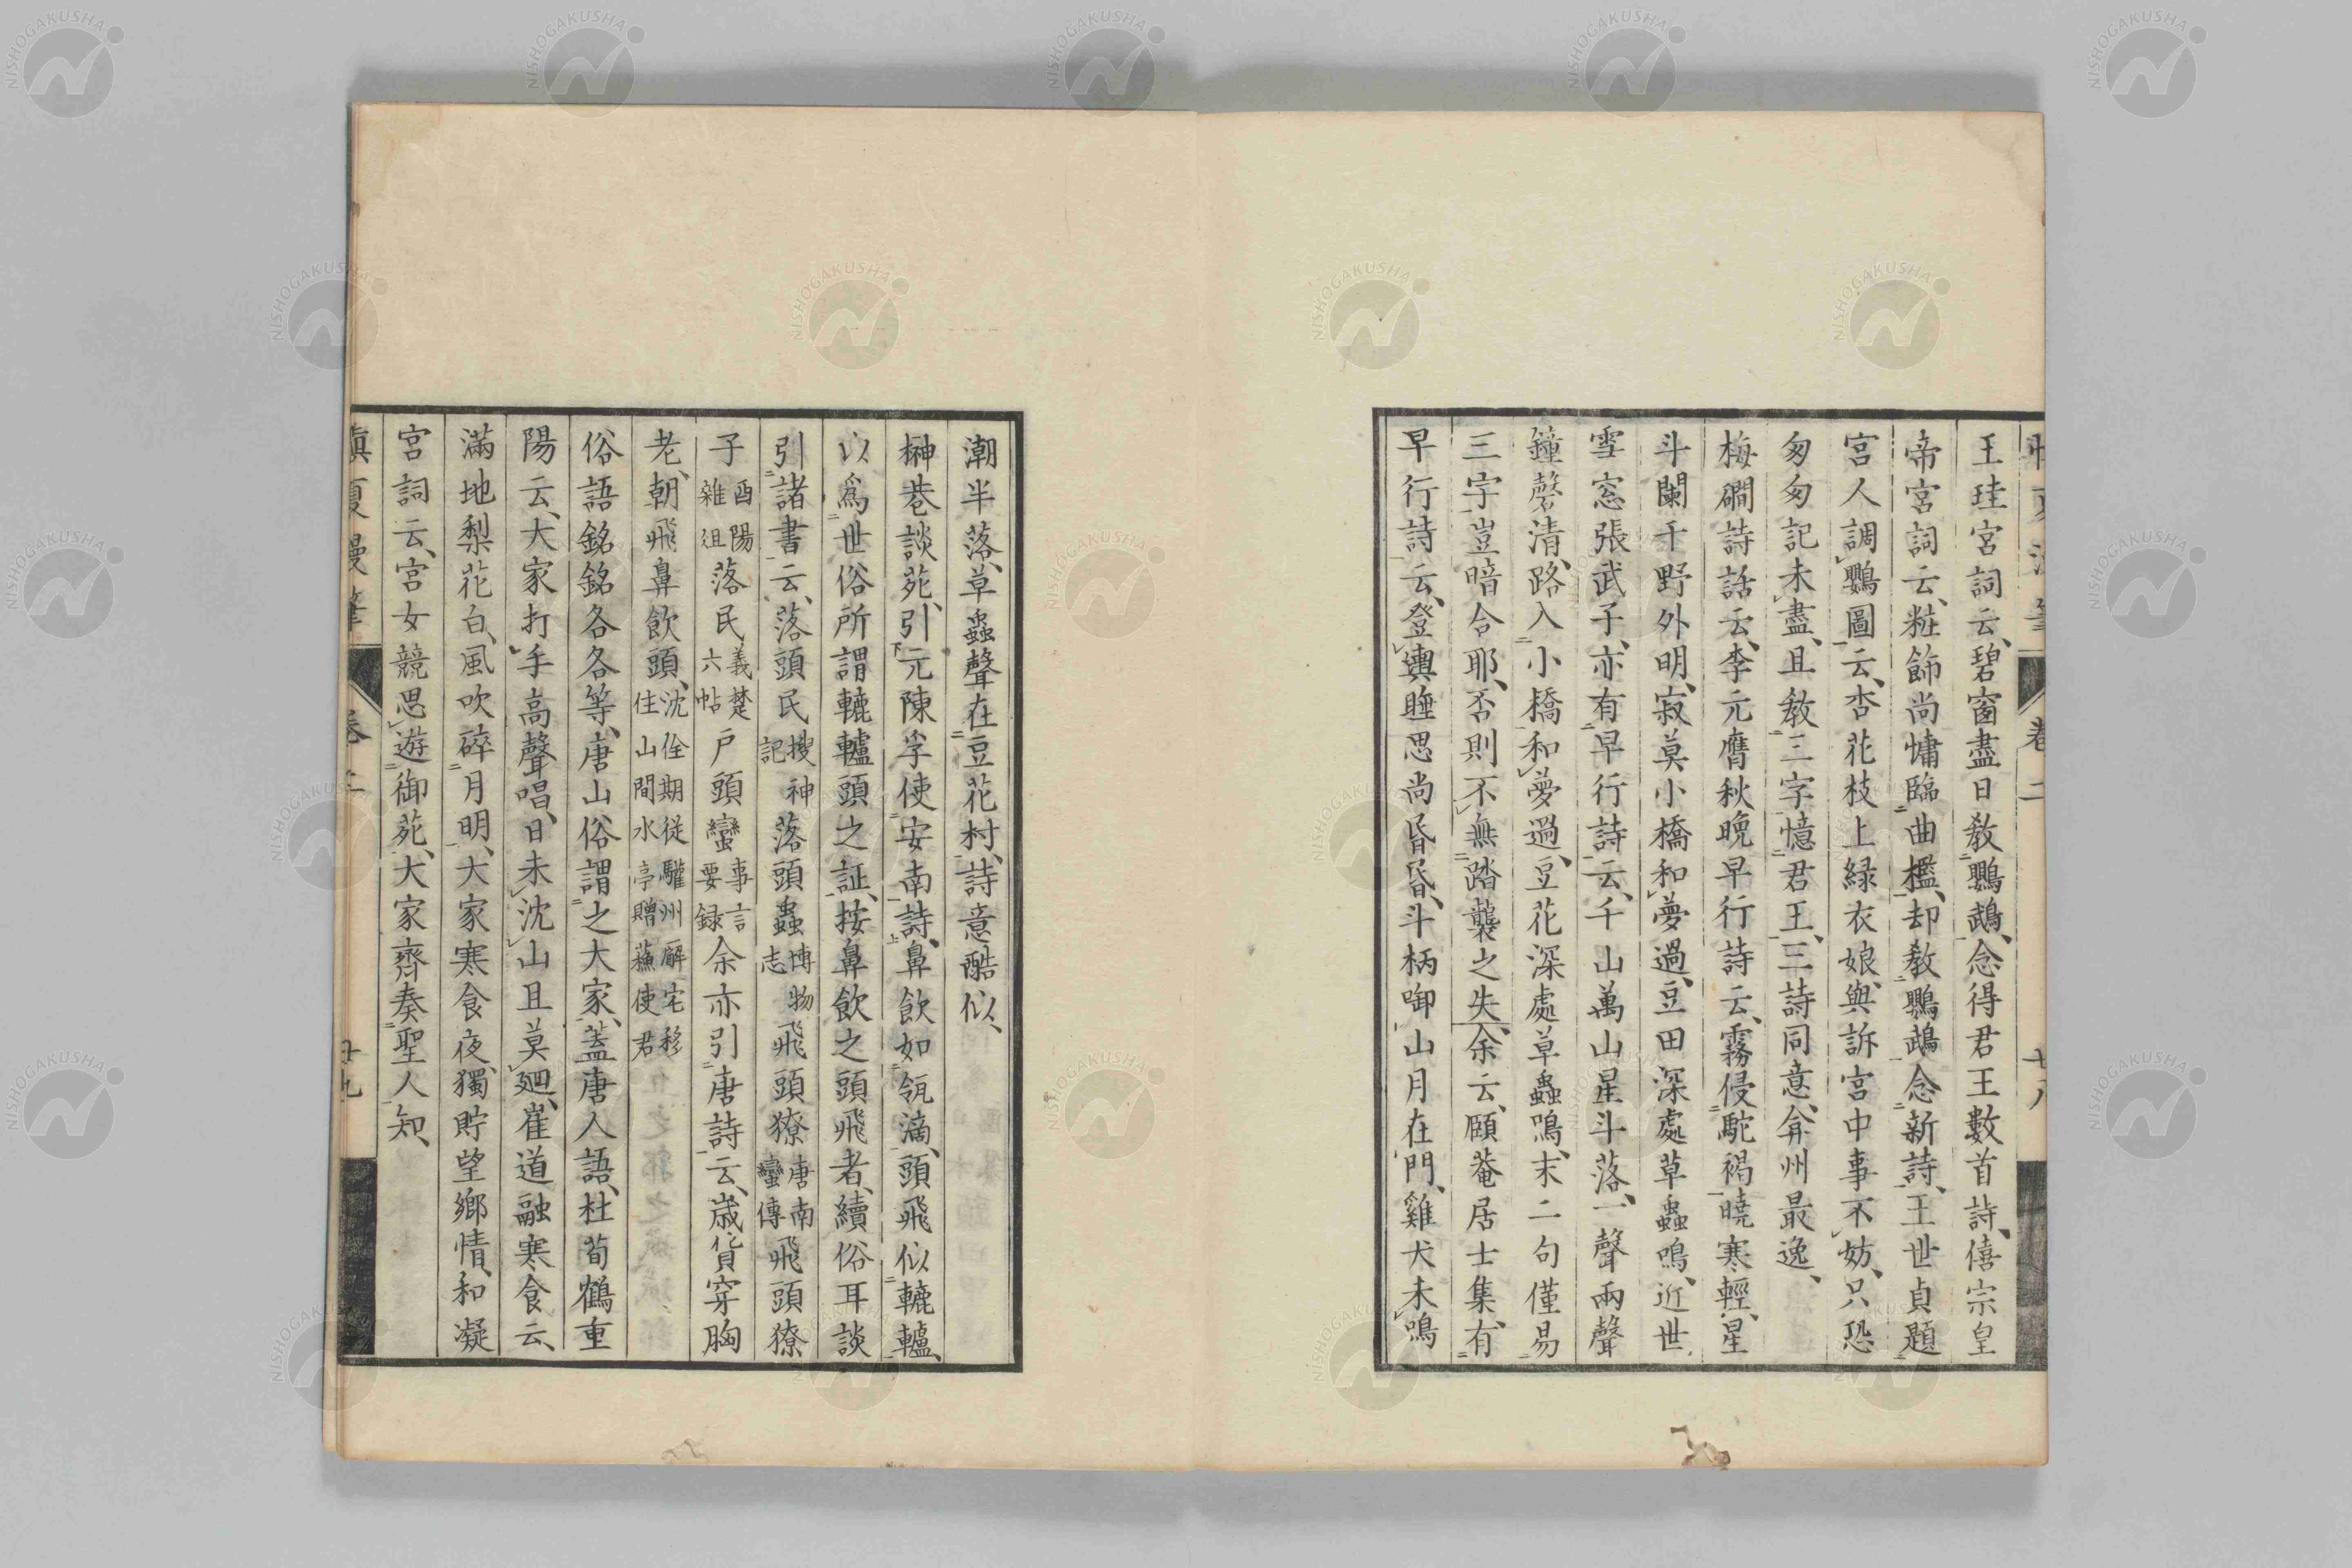 王珪宮詞云、碧窗盡日教鸚鵡、念得君王數首詩、僖宗皇
帝宮詞云、粧飾尚慵臨曲檻、却教鸚鵡念新詩、王世貞題
宮人調鸚圖云、杏花枝上綠衣娘、與訴宮中事不妨、只恐
匆匆記未盡、且教三字憶君王、三詩同意、弇州最逸、
梅磵詩話云、李元膺秋晚早行詩云、霧侵駝褐曉寒輕、星
斗闌干野外明、寂莫小橋和夢過、豆田深處草蟲鳴、近世
雪窓張武子、亦有早行詩云、千山萬山星斗落、一聲兩聲
鐘磬清、路入小橋和夢過、豆花深處草蟲鳴、末二句僅易
三字、豈暗合耶、否則不無踏襲之失、余云、頤菴居士集、有
早行詩云、登輿睡思尚昏昏、斗柄啣山月在門、雞犬未鳴
潮半落、草蟲聲在豆花村、詩意酷似、
榊巷談苑、引元陳孚使安南詩、鼻飲如瓴滴、頭飛似轆轤、
以爲世俗所謂轆轤頭之証、按鼻飲之頭飛者、續俗耳談
引諸書云、落頭民搜神記落頭蟲博物志飛頭獠唐南蠻傳飛頭獠
子酉陽雜俎落民義楚六帖戶頭蠻事言要録余亦引唐詩云、歳貨穿胸
老、朝飛鼻飲頭、沈佺期從驩州廨宅移住山間水亭贈蘓使君
俗語銘銘各各等、唐山俗謂之大家、蓋唐人語、杜荀鶴重
陽云、大家打手高聲唱、日未沈山且莫廻、崔道融寒食云、
滿地梨花白、風吹碎月明、大家寒食夜、獨貯望鄉情、和凝
宮詞云、宮女競思遊御苑、大家齊奏聖人知、
卷二
廿八
廿九
NISHOGAKUSHA